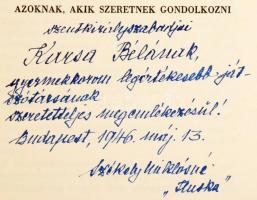 AZOKNAK, AKIK SZERETNEK GONDOLKOZNI
szentkirályszabadjai
Kursa Bélának,
gyermekkorom legértékesebb ját-
szótársának
szeretetteljes megemlékezésül!
Budapest, 1946. máj. 13.
Székely Miklósné
„Pluska"